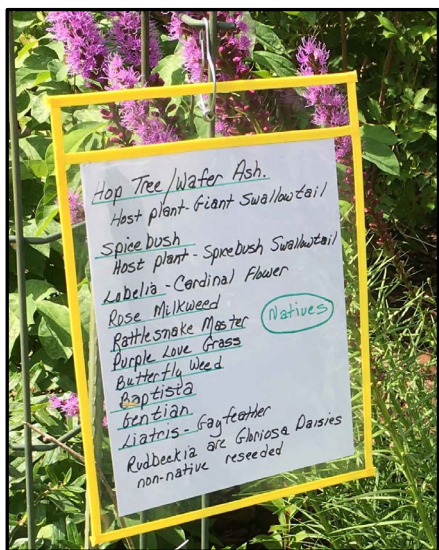 Hop Tree/Wafer Ash.
Host plant-Giant Swallowtail
Spicebush
Host plant - Spicebush Swallowtail
Lobelia - Cardinal Flower
Rose Milkweed
Rattlesnake Master
Natives
Purple Love Grass
Butterfly Weed
Baptista
Gentian
Liatris - Gayfeather
Rudbeckia are Gloriosa Daisies
non-native reseeded